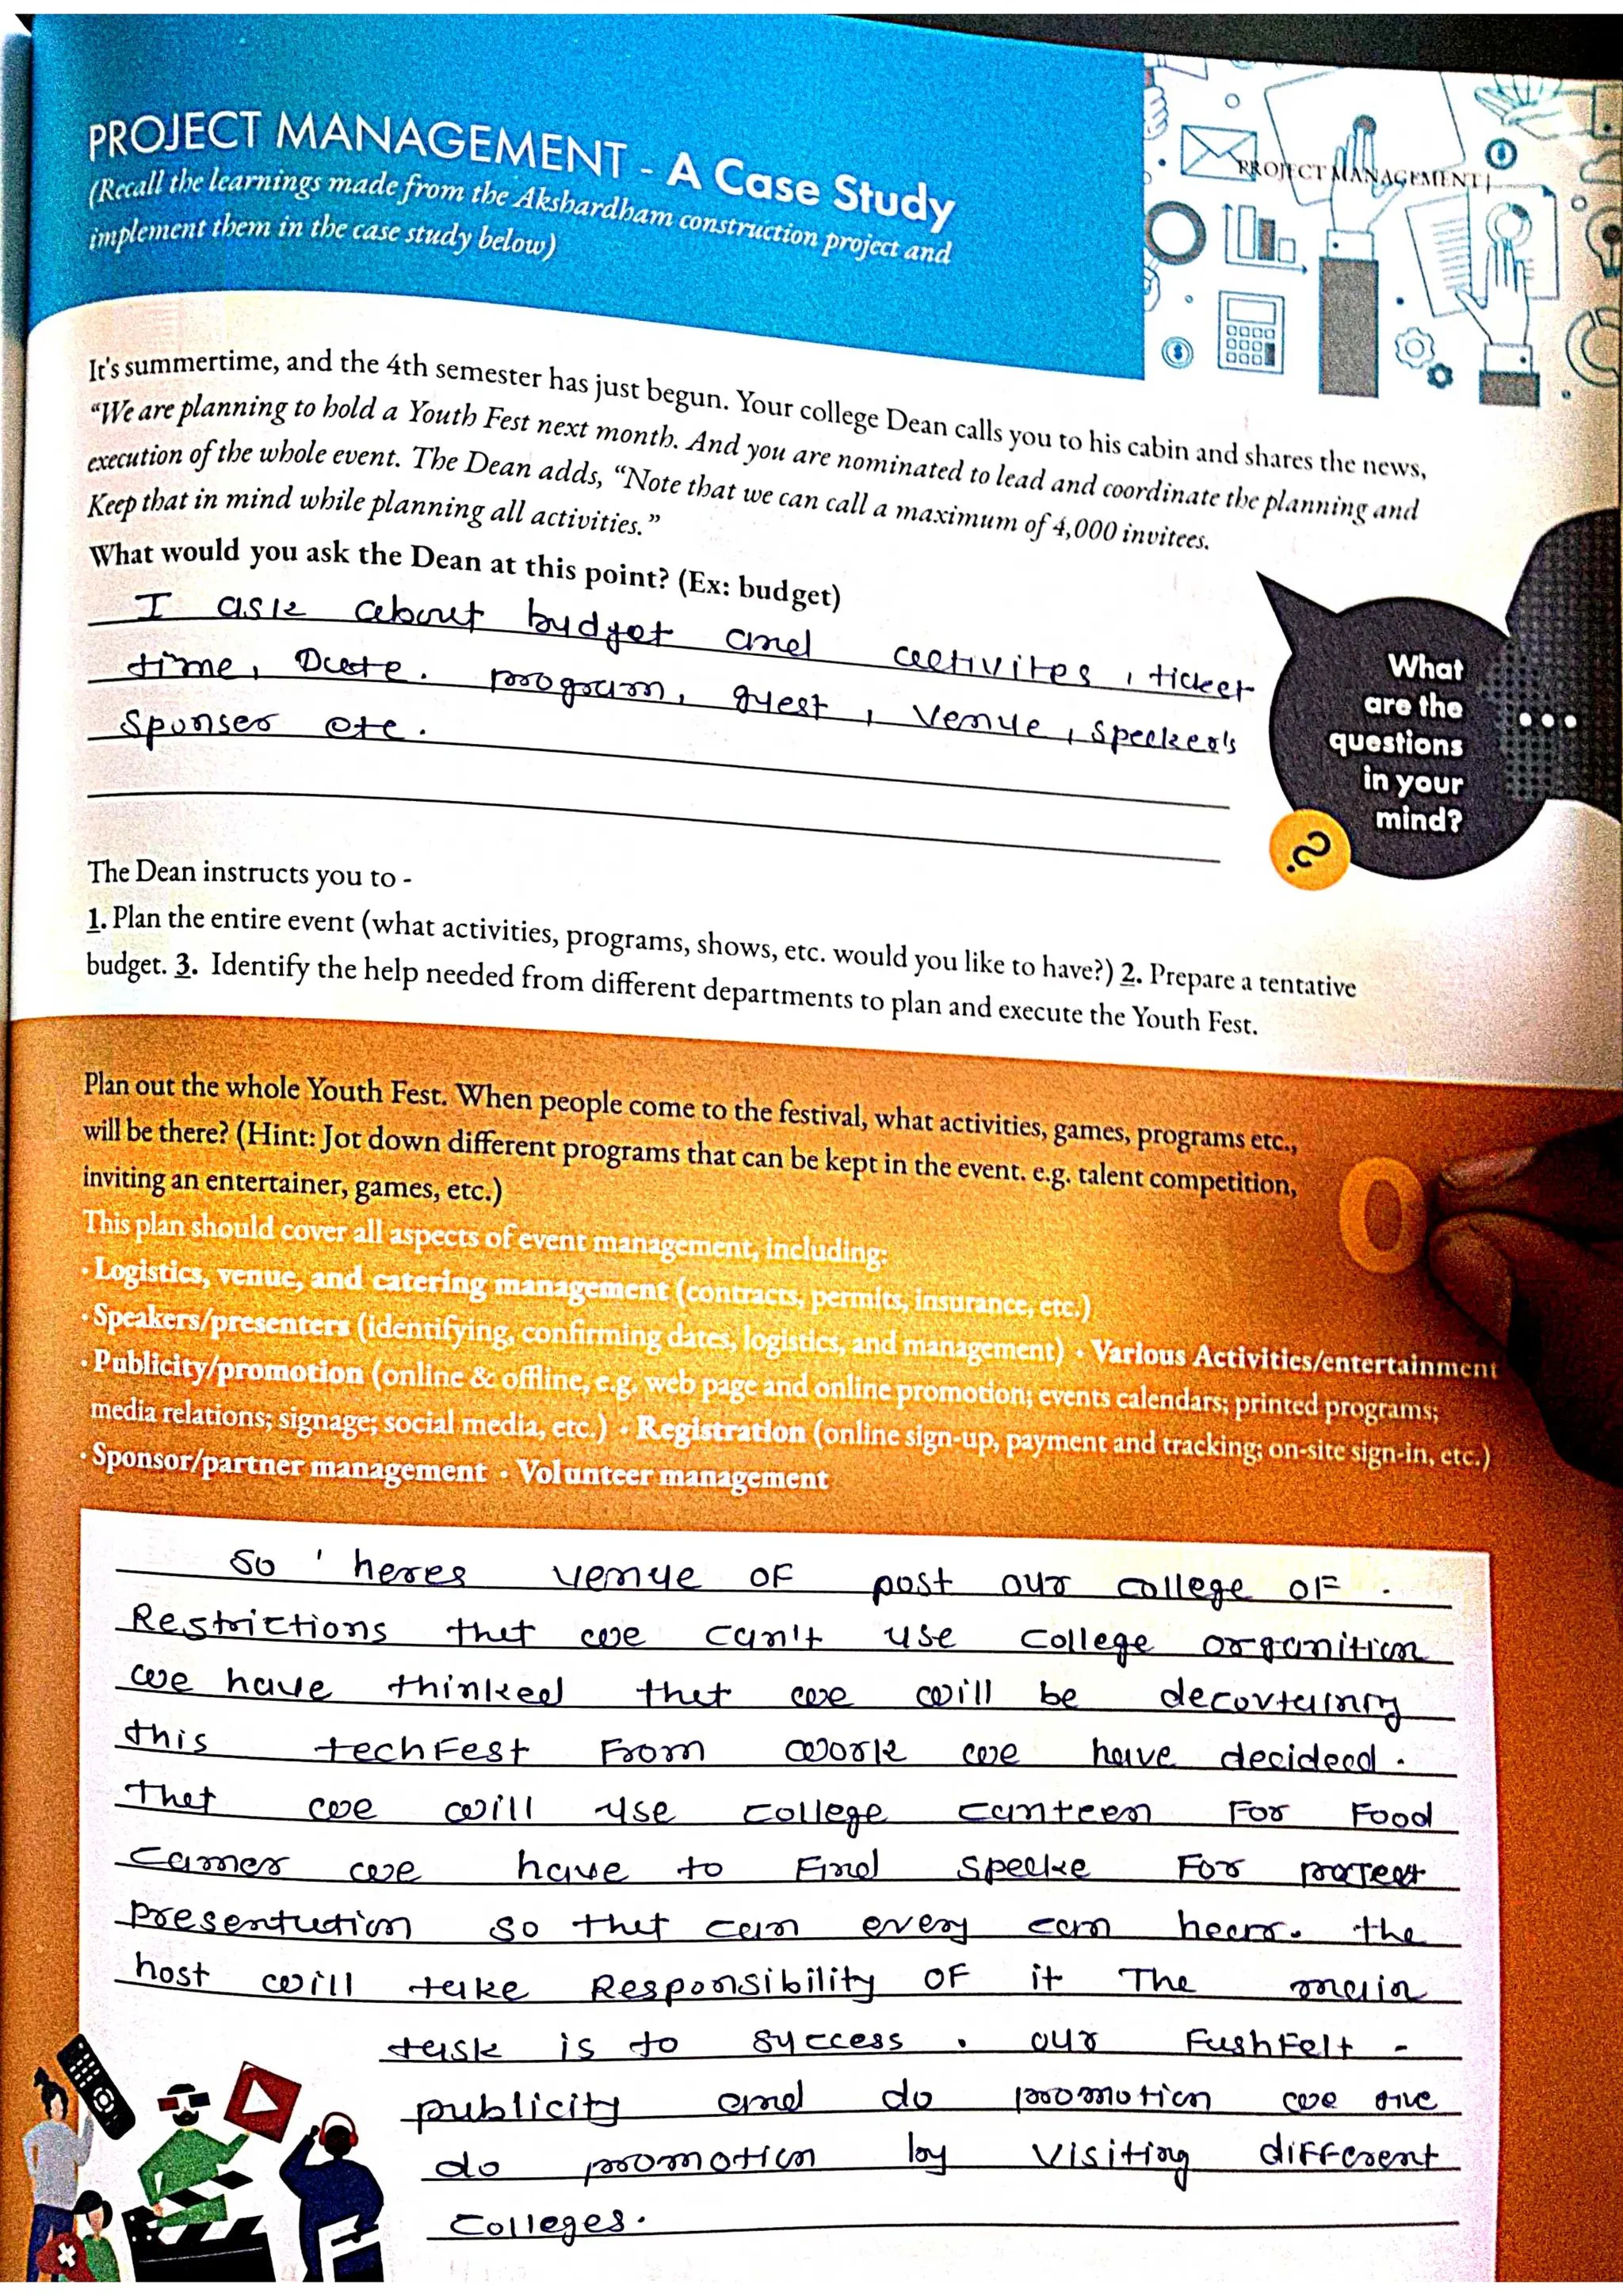 PROJECT MANAGEMENT - A Case Study
(Recall the learnings made from the Akshardham construction project and
implement them in the case study below)
PROJECT MANAGEMENT |
It's summertime, and the 4th semester has just begun. Your college Dean calls you to his cabin and shares the news,
“We are planning to hold a Youth Fest next month. And you are nominated to lead and coordinate the planning and
execution of the whole event. The Dean adds, “Note that we can call a maximum of 4,000 invitees.
Keep that in mind while planning all activities.”
What would you ask the Dean at this point? (Ex: budget)
I ask about budget and activites, ticket
time, Date. program, guest, venue, speeker's
Sponser etc.
What
are the
questions
in your
mind?
?
The Dean instructs you to -
1. Plan the entire event (what activities, programs, shows, etc. would you like to have?) 2. Prepare a tentative
budget. 3. Identify the help needed from different departments to plan and execute the Youth Fest.
Plan out the whole Youth Fest. When people come to the festival, what activities, games, programs etc.,
will be there? (Hint: Jot down different programs that can be kept in the event. e.g. talent competition,
inviting an entertainer, games, etc.)
This plan should cover all aspects of event management, including:
• Logistics, venue, and catering management (contracts, permits, insurance, etc.)
• Speakers/presenters (identifying, confirming dates, logistics, and management) • Various Activities/entertainment
• Publicity/promotion (online & offline, e.g. web page and online promotion; events calendars; printed programs;
media relations; signage; social media, etc.) • Registration (online sign-up, payment and tracking; on-site sign-in, etc.)
• Sponsor/partner management • Volunteer management
So ' heres venue OF post our college OF .
Restrictions thet we can't use college organition
we have thinked thet we will be
this techFest From work we have decideed.
Thet we will use college canteen For Food
we have to Find speeke For
presentation so thet can every can hear. the
host will take Responsibility OF it The main
task is to success . our FushFelt -
publicity and do promotion we
do promotion by visiting different
colleges.